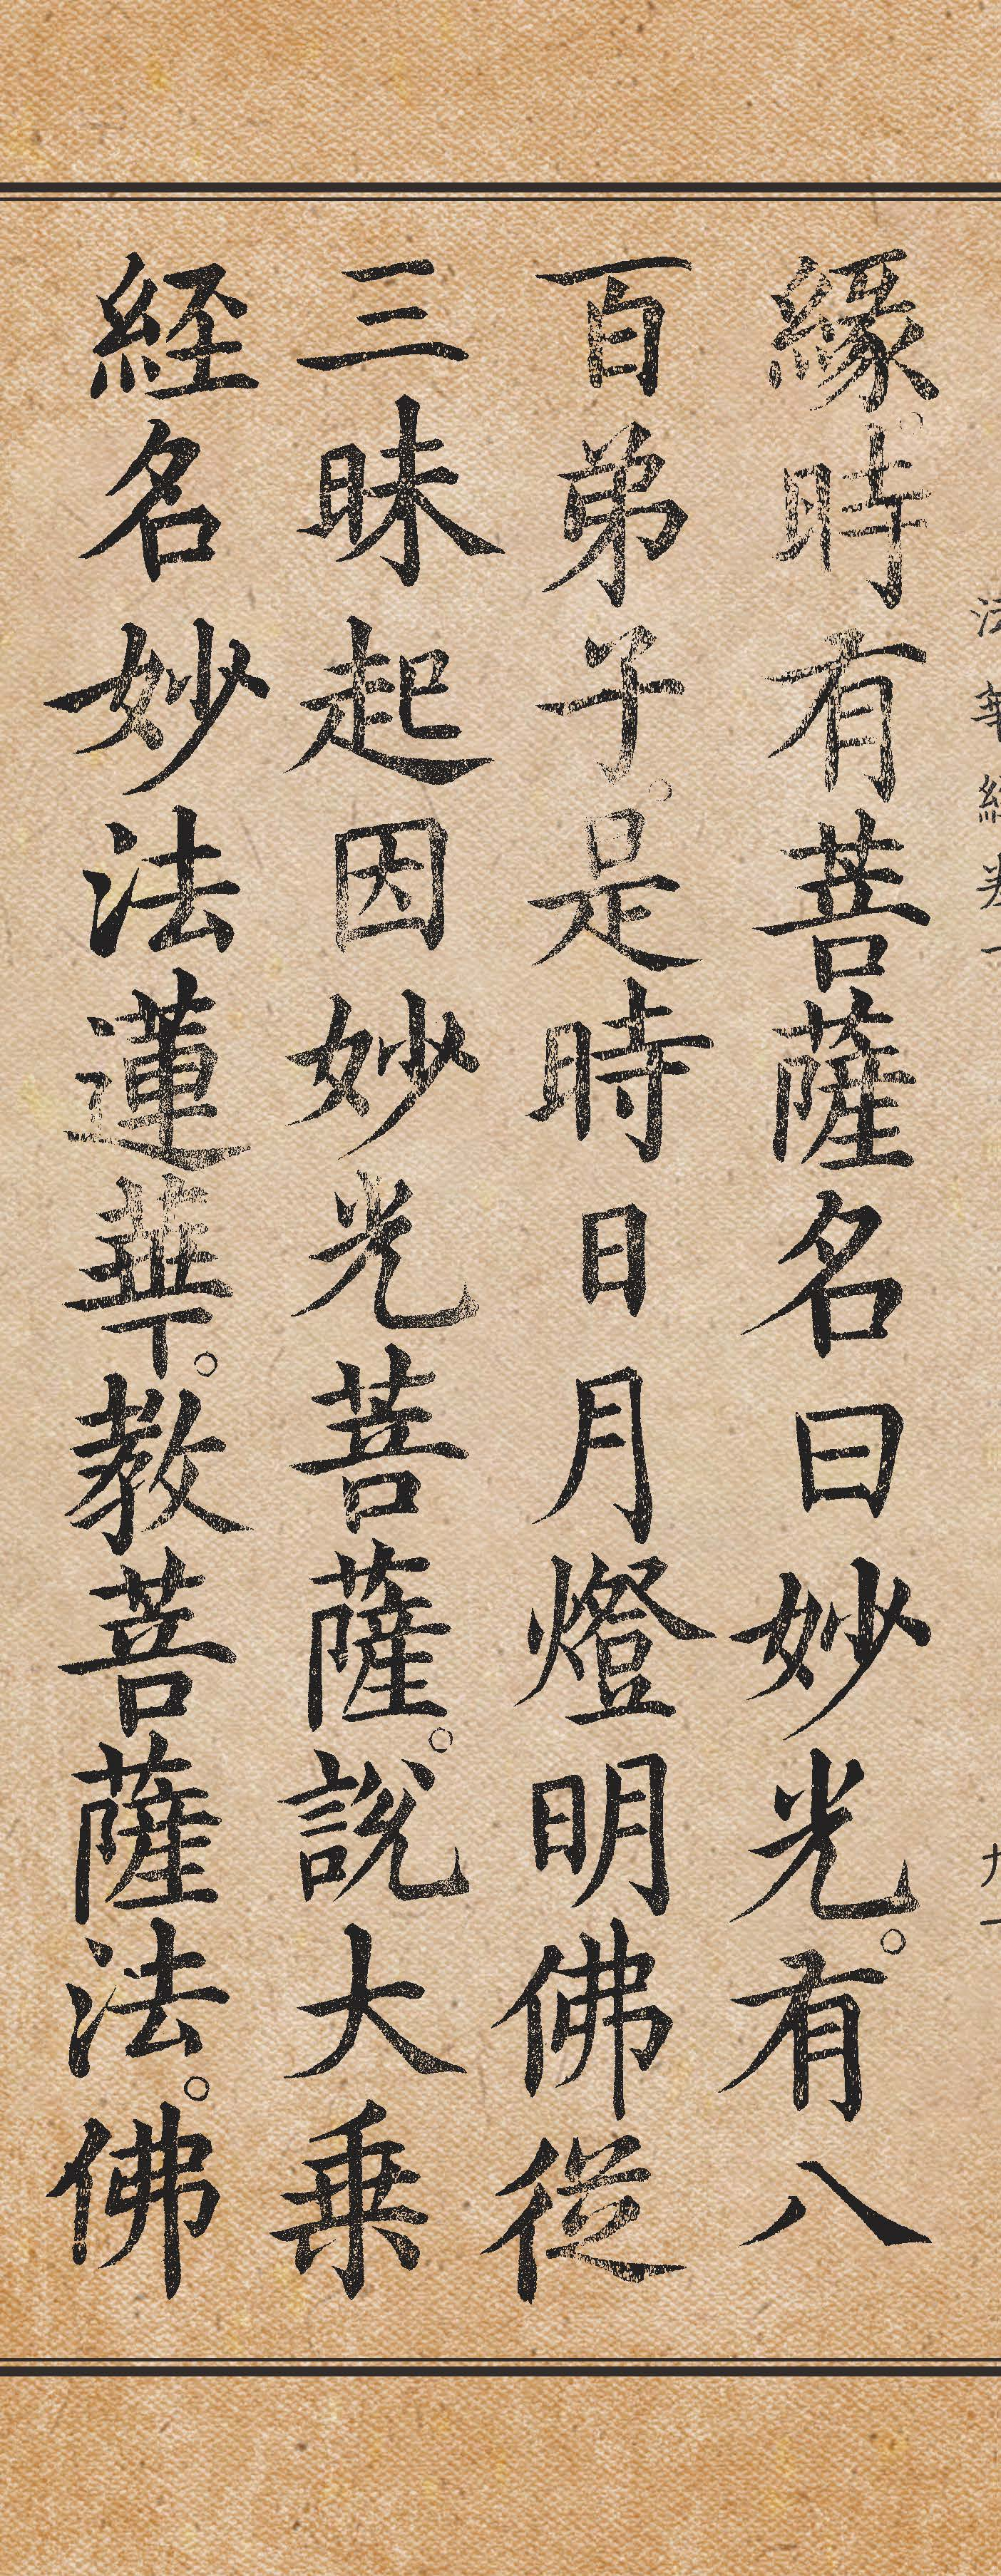 法華經卷一 九十
緣。時有菩薩名曰妙光。有八
百弟子。是時日月燈明佛從
三昧起因妙光菩薩。說大乗
経名妙法蓮華。教菩薩法。佛